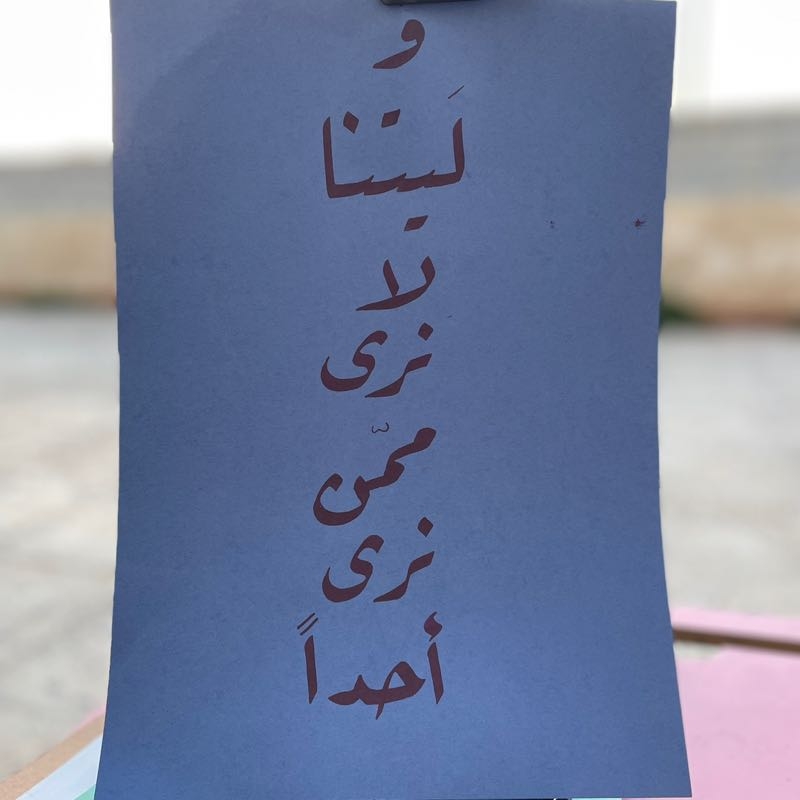 و
لَيتنا
لا
نرى
ممّن
نرى
أحداً